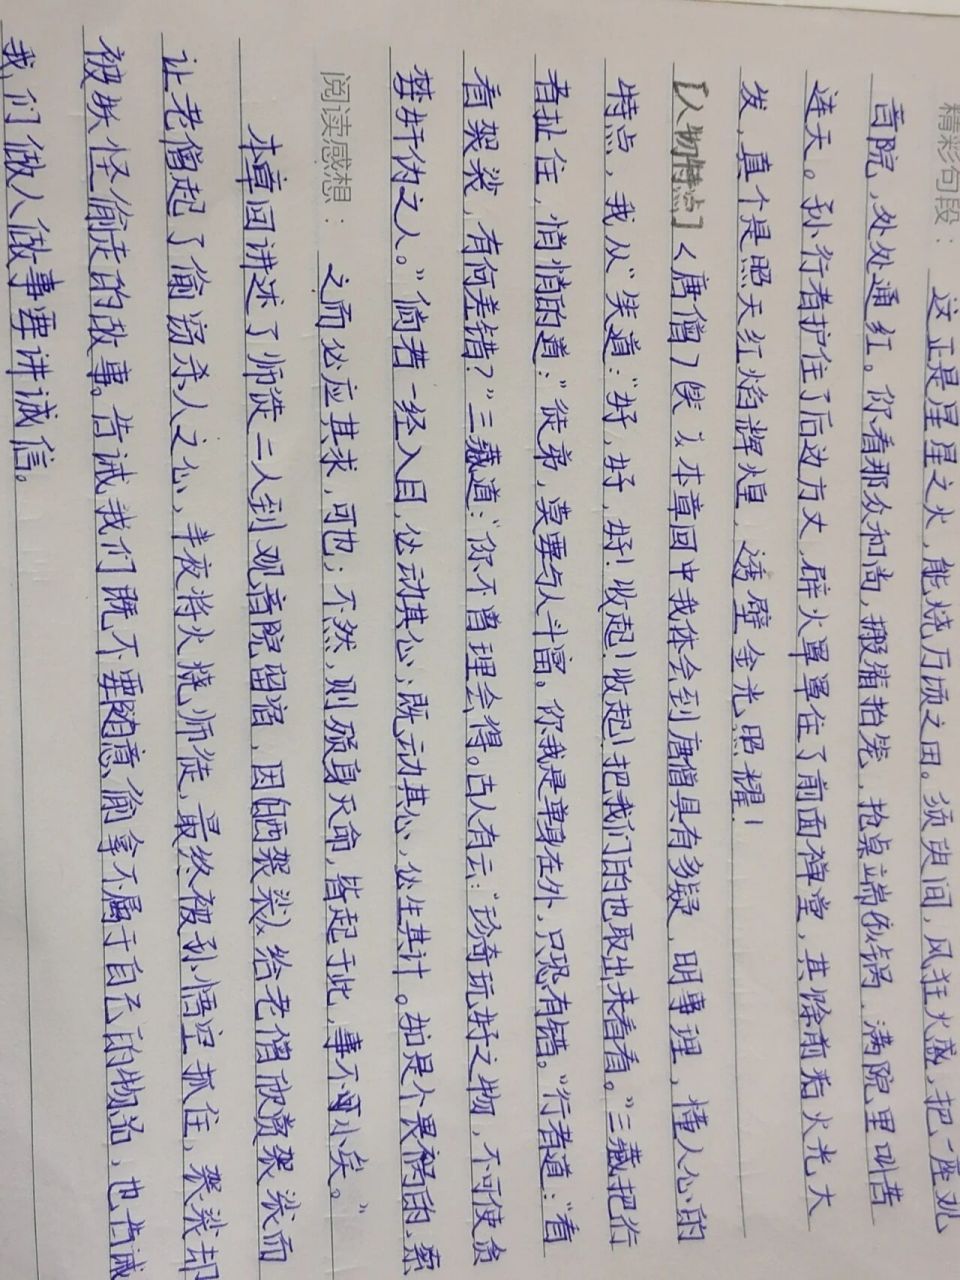 精彩句段：这正是星星之火，能烧万顷之田。须臾间，风狂火盛，把一座观
音院，处处通红。你看那众和尚，搬箱抬笼，抢桌端锅，满院里叫苦
连天。孙行者护住了后边方丈，辟火罩罩住了前面禅堂，其馀前后火光大
发，真个是照天红焰辉煌，透壁金光照耀！
【人物特点】<唐僧>（续）：本章回中我体会到唐僧具有多疑，明事理，懂人心的
特点，我从“笑道：“好，好，好！收起！收起！把我们的也取出来看看。”三藏把行
者扯住，悄悄的道：“徒弟，莫要与人斗富。你我是单身在外，只恐有错。”行者道：“看
看袈裟，有何差错？”三藏道：“你不曾理会得。古人有云：‘珍奇玩好之物，不可使贪
婪奸伪之人。”倘若一经入目，必动其心；既动其心，必生其计。如是个畏祸的，索
阅读感想：之而必应其求，可也；不然，则殒身灭命，皆起于此，事不可小矣。”
本章回讲述了师徒二人到观音院留宿，因晒袈裟给老僧欣赏袈裟而
让老僧起了偷窃杀人之心，半夜将火烧师徒，最终被孙悟空抓住，袈裟却
被妖怪偷走的故事。告诫我们既不要随意偷拿不属于自己的物品，也告诫
我们做人做事要讲诚信。